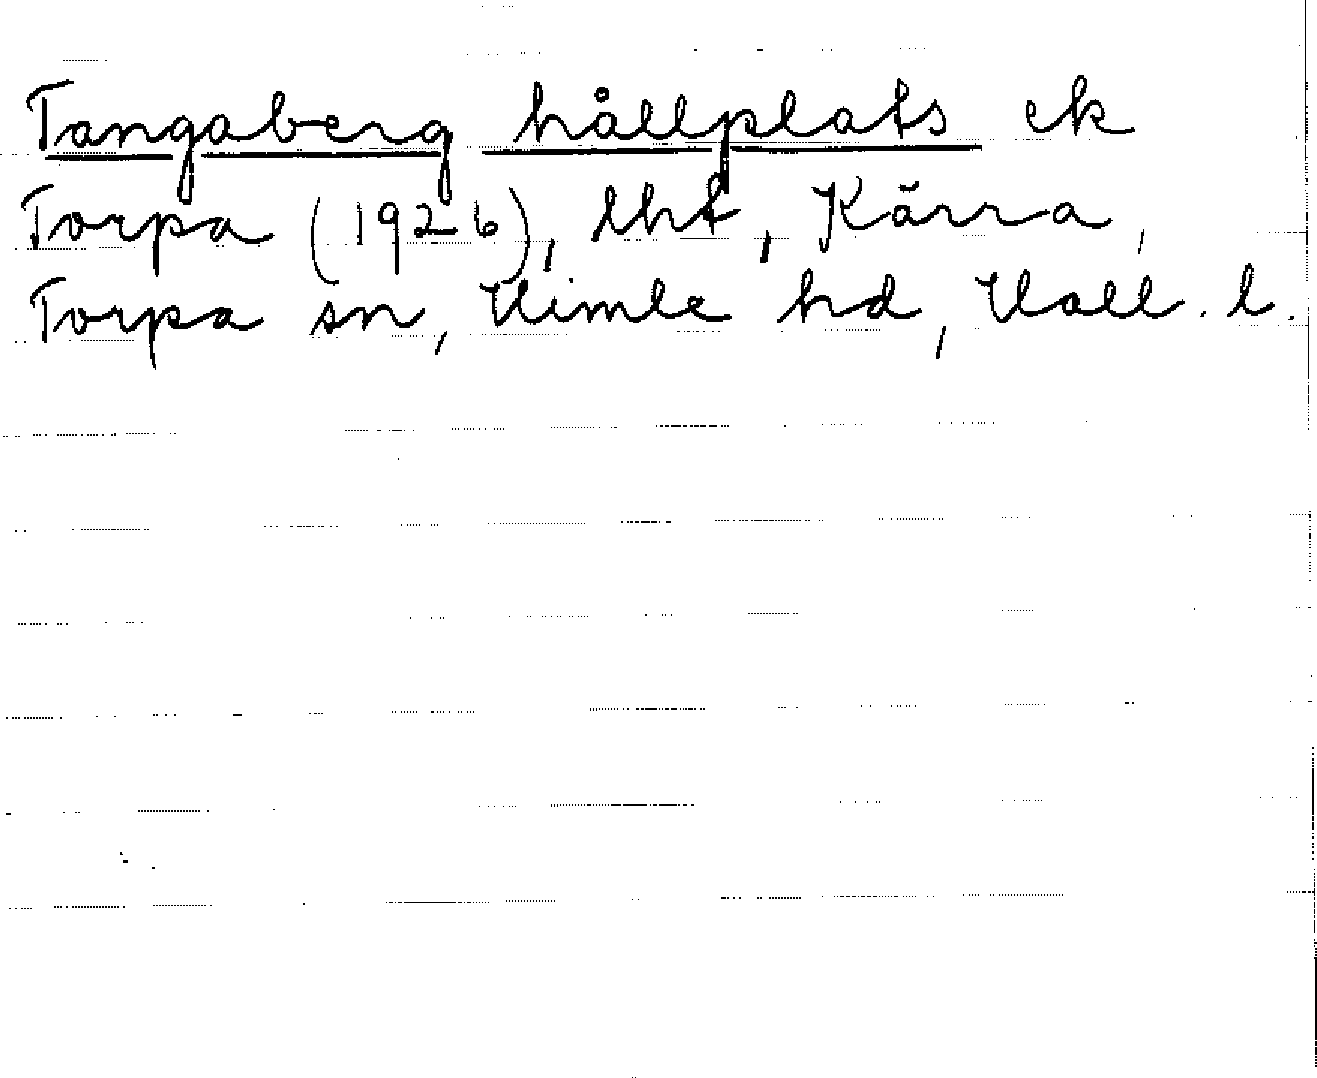 Tangaberg hållplats ek
Torpa (1926), lht, Kärra,
Torpa sn, Himle hd, Hall. l.